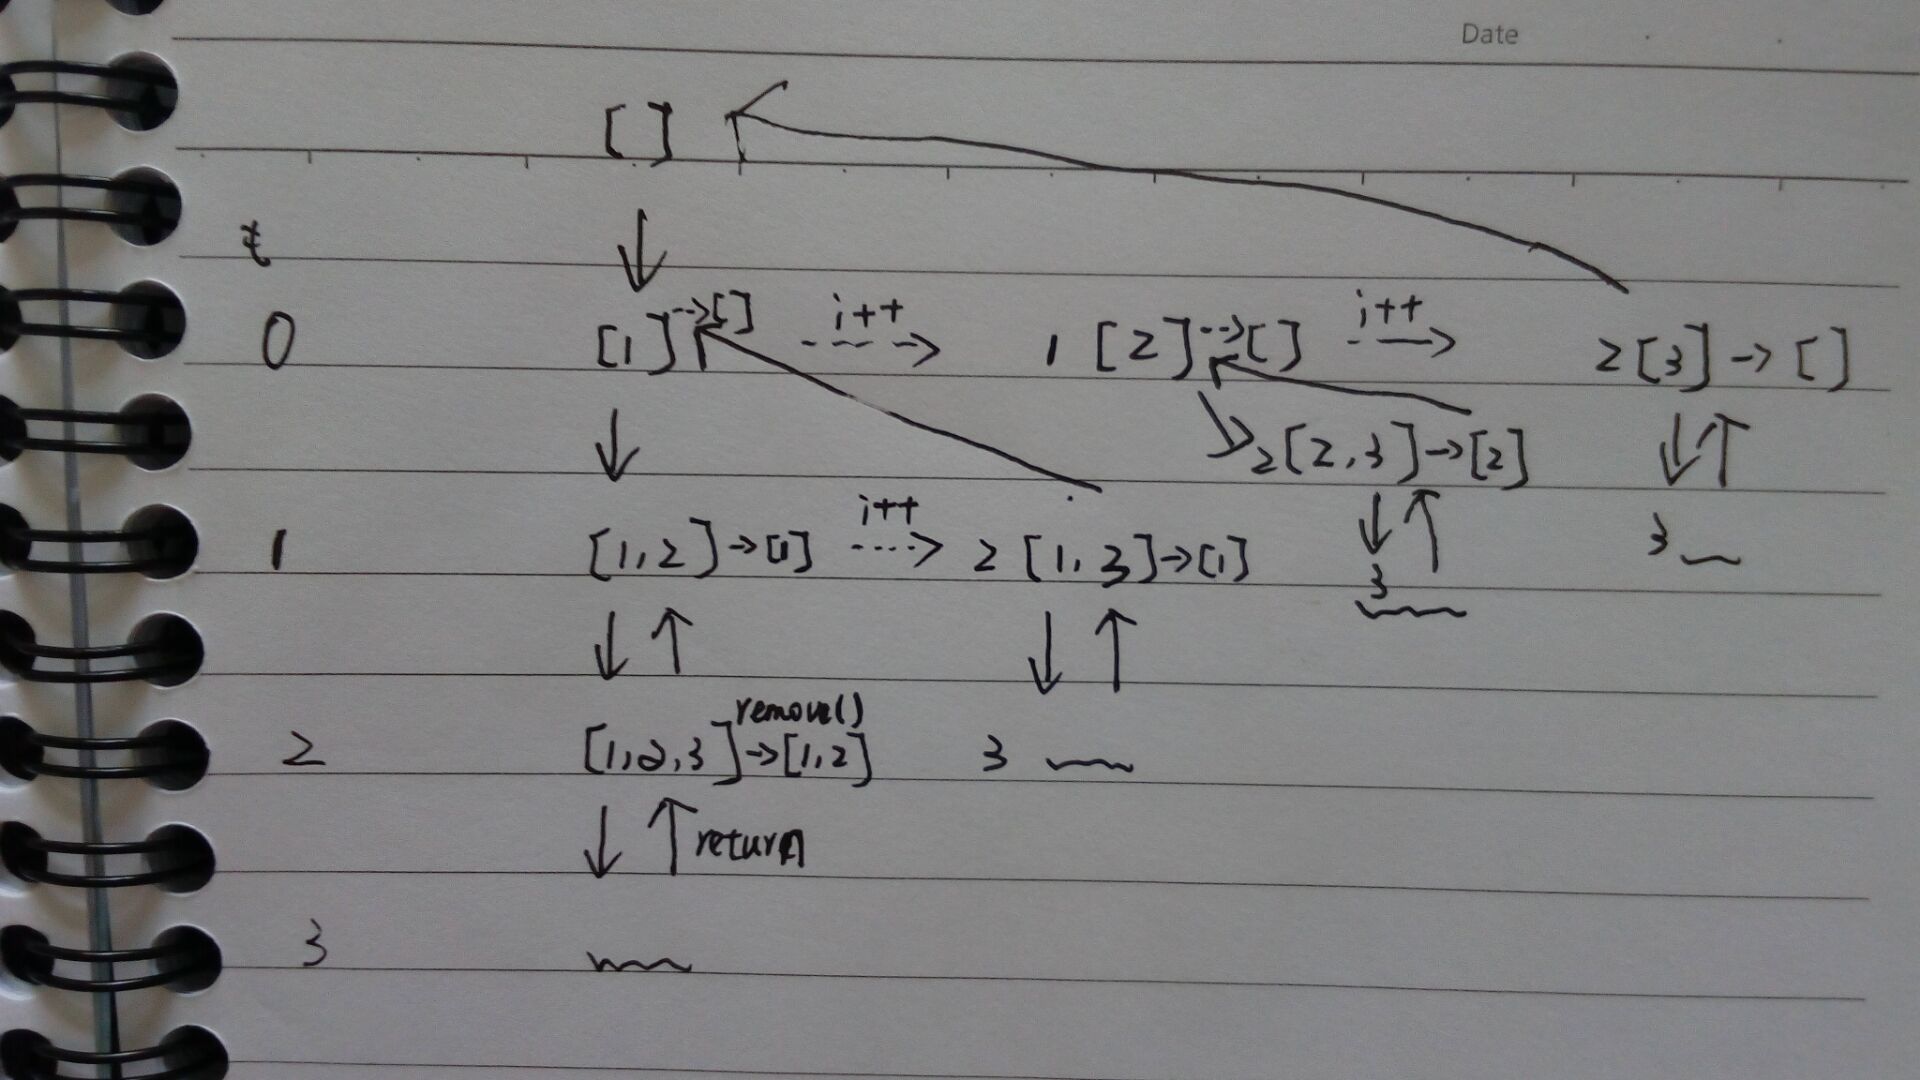 Date
[ ]
t
i++ i++
0 [1] → [] → 1 [2] → [ ] → 2 [3] → [ ]
2 [2,3] → [2]
i++
1 [1,2] → [1] → 2 [1,3] → [1] 3 3
remove()
2 [1,2,3] → [1,2] 3
return
3